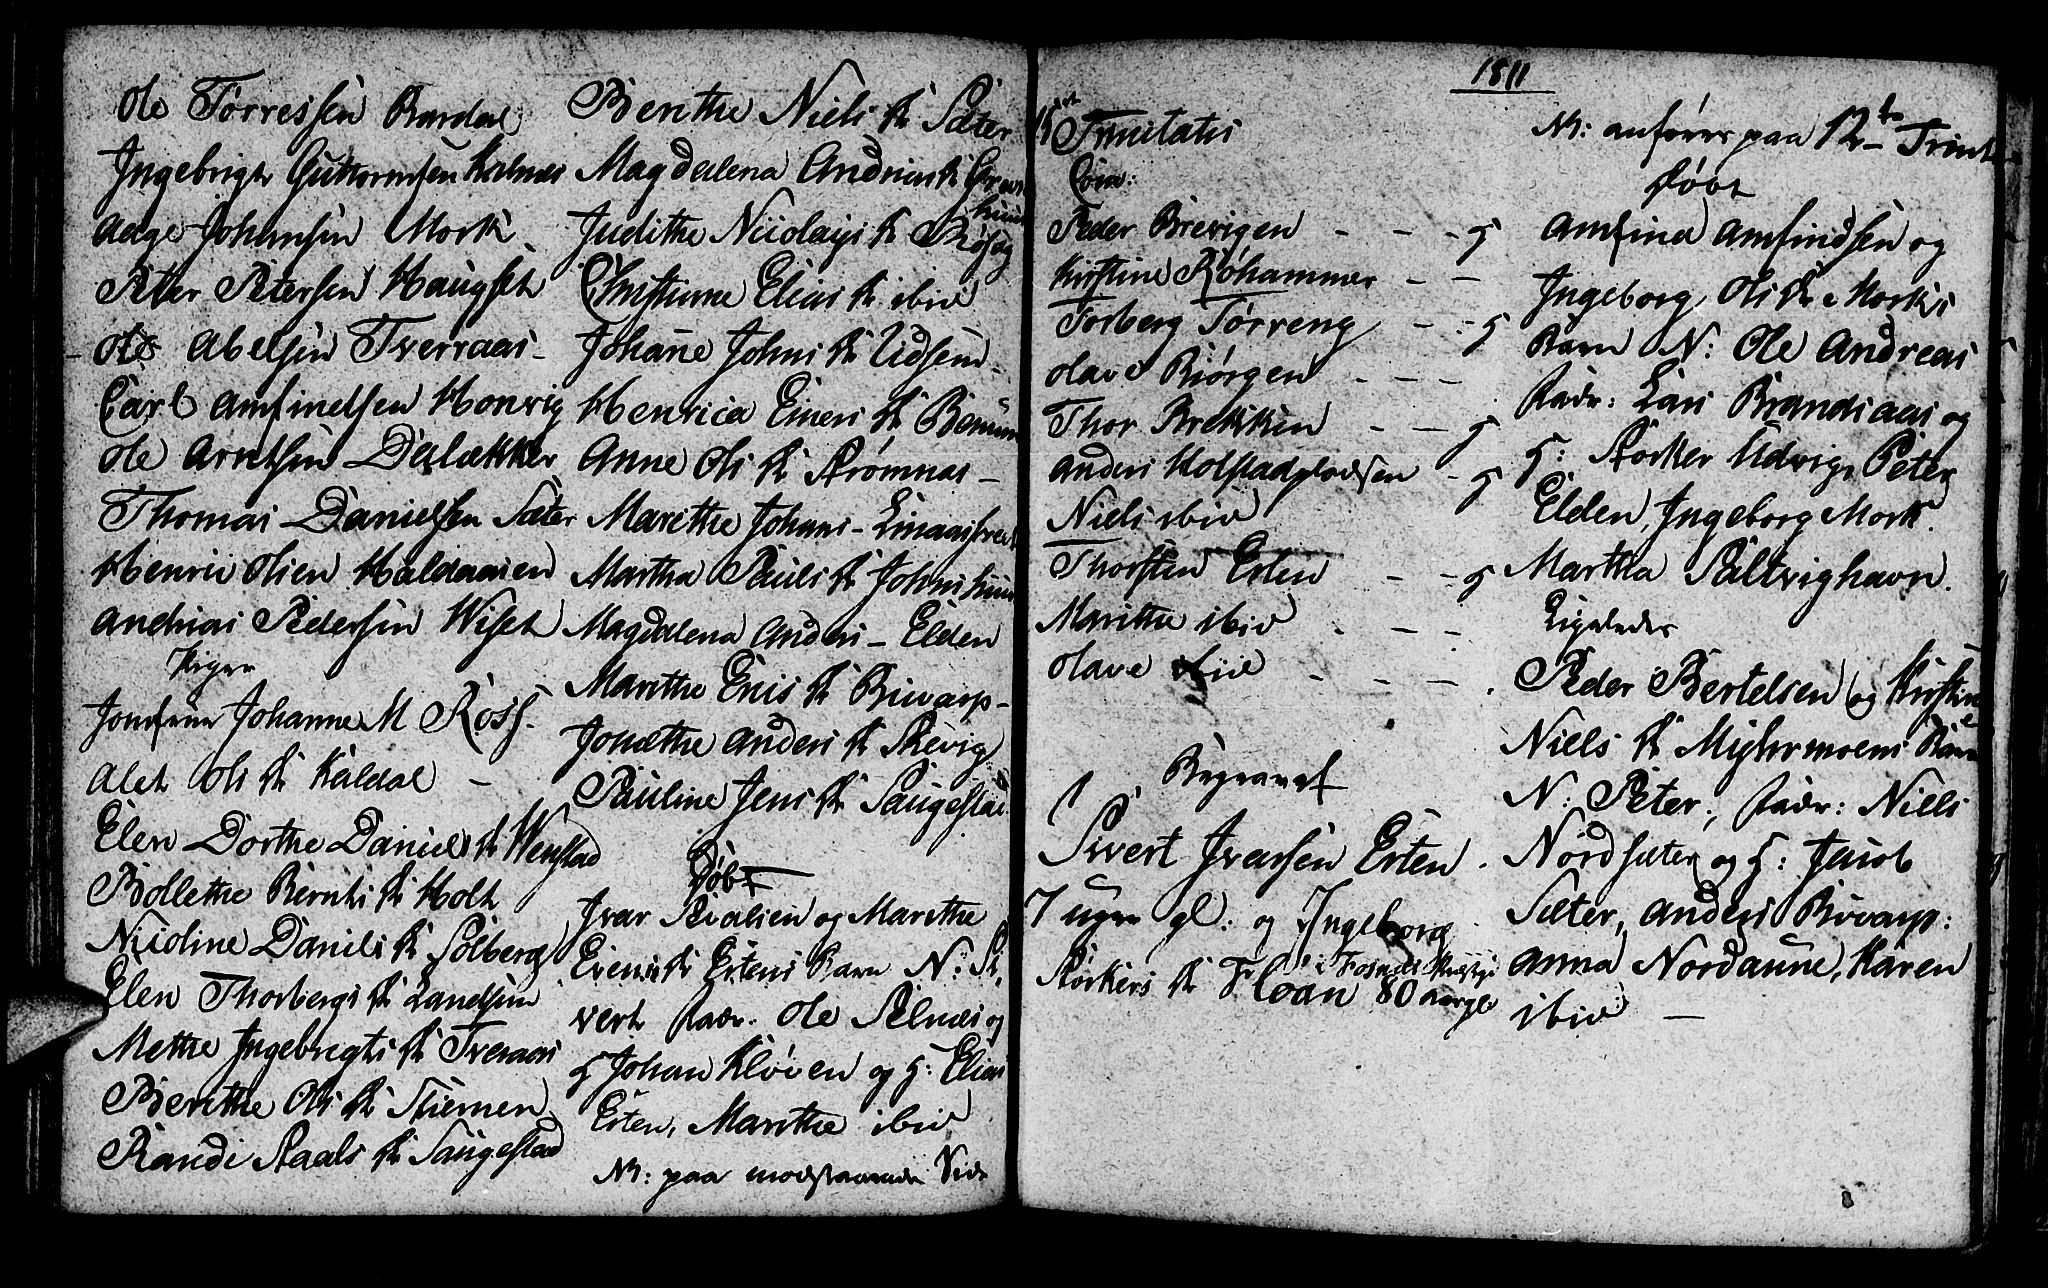 Ole Tørressen Bardal
Ingebrigt Guttormsen Kalnes
Aage Johansen Mork
Peter Petersen Haugset
Ole Abelsen Tverraas
Carl Amfindsen Honvig
Ole Arntsen Dalækker
Thomas Danielsen Sæter
Henric Olsen Haldaasen
Andreas Pedersen Wiset
Piger
Jomfrue Johanne M Ross
Alet Ols Dr Kaldal
Elen Dorthe Daniels Dr Wenstad
Bollethe Bernts Dr Holt
Nicoline Daniels Dr Solberg
Elen Thorbergs Dr Landsem
Methe Ingebregts Dr Tveraas
Berethe Ols Dr Stiernen
Randi Paals Dr Saugestad
Berethe Niels Dr Sæter
Magdalena Andreas Dr
Judithe Nicolays Dr Røsøg
Christianne Elias Dr ibid
Johanne Johns Dr Udsem
Henrica Einers Dr
Anne Ols Dr Strømnæs
Marithe Johans
Martha Pauls Dr
Magdalena Anders Elden
Marithe Eriks Dr Buvarp
Jonethe Anders Dr Skevig
Pauline Jens Dr Saugestad
Døbt
Ivar Sivalsen og Marethe
Evens Dr Ertens Barn N: Si
vert Fadr: Ole Selnæs og
G Johan Kløven og G: Elias
Erten, Marethe ibid
NB: paa modstaaende Side
1811
15de Trinitatis
Com:
Peder Brevigen - - - G
Kirstine Røhammer - -
Torberg Tørreng - - G
Olave Biørgen - - -
Thor Brekken - - G
Anders Holstadpladsen - G
Niels ibid
Thorsten Erten - - G
Marithe ibid - - -
Olave ibid - - -
Begravet
Sivert Ivarsen Erten
7 uger gl: og Ingeborg
Størkers Dr Floan i Fosnes 80 aar gl
NB: anføres paa 12te Trinit
Døbt
Amfind Amfindsen og
Ingeborg Ols Dr Morks
Barn N: Ole Andreas
Fadr: Lars Brandsaas og
G: Størker Udvig, Peter
Elden, Ingeborg Mork
Martha Saltvighavn.
Ligeledes
Peder Bertelsen og Kirstine
Niels Dr Barn
N: Peter, Fadr: Niels
Nordsæter og G: Jacob
Sæter, Anders Buvarp:
Anna Nordaune, Karen
ibid